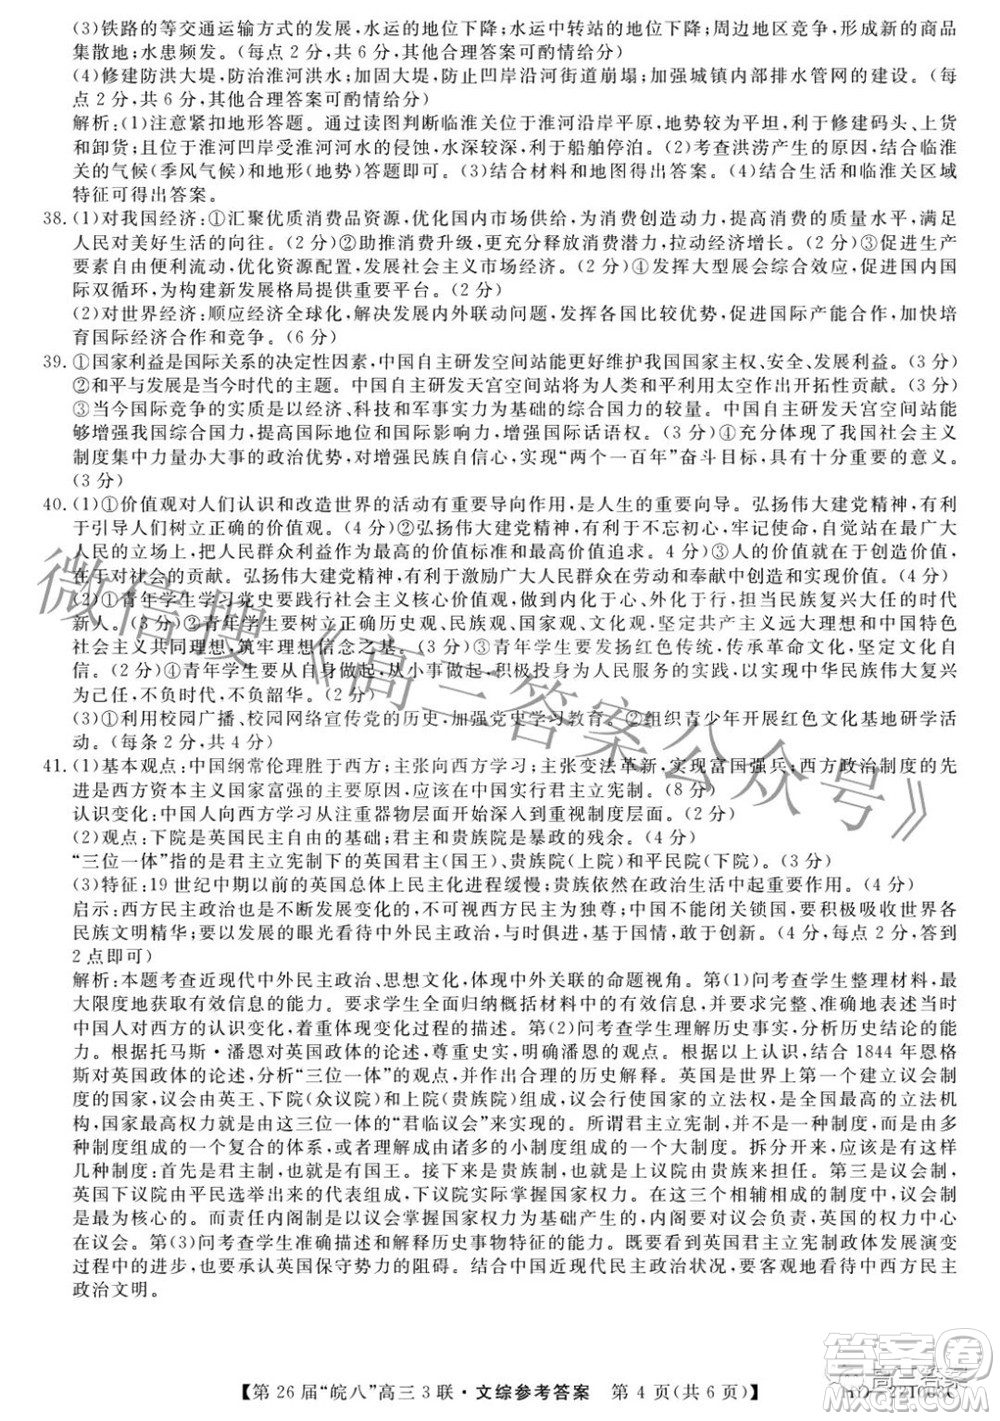 (3)铁路的等交通运输方式的发展,水运的地位下降;水运中转站的地位下降;周边地区竞争,形成新的商品
集散地;水患频发。(每点2分,共6分,其他合理答案可酌情给分)
(4)修建防洪大堤,防治淮河洪水;加固大堤,防止凹岸沿河街道崩塌;加强城镇内部排水管网的建设。(每
点2分,共6分,其他合理答案可酌情给分)
解析:(1)注意紧扣地形答题。通过读图判断临淮关位于淮河沿岸平原,地势较为平坦,利于修建码头、上货
和卸货;且位于淮河凹岸受淮河河水的侵蚀,水深较深,利于船舶停泊。(2)考查洪涝产生的原因,紧扣临淮
关的气候(季风气候)和地形(地势)答题即可。(3)结合材料和地图答题。(4)结合生活和临淮关区域
特征可得出答案。
38.(1)对我国经济:①汇聚优质消费品资源,优化国内市场供给,为消费创造动力,提高消费的质量水平,满足
人民对美好生活的向往。(2分)②助推消费升级,更充分释放消费潜力,拉动经济增长。(2分)③促进经济
要素自由便利流动,优化资源配置,发展社会主义市场经济。(2分)④发挥大型展会综合效应,促进国内国
际双循环,为构建新发展格局提供重要平台。(2分)
(2)对世界经济:顺应经济全球化,解决发展内外联动问题,发挥各国比较优势,促进国际产能合作,加快培
育国际经济合作和竞争。(6分)
39.①国家利益是国际关系的决定性因素,中国自主研发空间站能更好维护我国国家主权、安全、发展利益。(3分)
②和平与发展是当今时代的主题。中国自主研发天宫空间站将为人类和平利用太空作出开拓性贡献。(3分)
③当今国际竞争的实质是以经济、科技和军事实力为基础的综合国力的较量。中国自主研发天宫空间站能
够增强我国综合国力,提高国际地位和国际影响力,增强国际话语权。(3分)④充分体现了我国社会主义
制度集中力量办大事的政治优势,对增强民族自信心,实现“两个一百年”奋斗目标,具有十分重要的意义。
(3分)
40.(1)①价值观对人们认识和改造世界的活动有重要导向作用,是人生的重要向导。弘扬伟大建党精神,有
利于引导人们树立正确的价值观。(4分)②弘扬伟大建党精神,有利于不忘初心,牢记使命,自觉站在最广大
人民的立场上,把人民群众利益作为最高的价值标准和最高价值追求。(4分)③人的价值就在于创造价值,
在于对社会的贡献。弘扬伟大建党精神,有利于激励广大人民群众在劳动和奉献中创造和实现价值。(4分)
(2)①青年学生学习党史要践行社会主义核心价值观,做有理想、有本领、有担当,担当民族复兴大任的时代
新人。(2分)②青年学生要树立正确历史观、民族观、国家观、文化观,坚定共产主义远大理想和中国特色
社会主义共同理想,筑牢理想信念之基。(3分)③青年学生要发扬红色传统,传承革命精神,赓续红色血脉。
(2分)④青年学生要从自身做起,从点滴做起,积极投身为人民服务的实践,以实现中华民族伟大复兴
为己任,不负时代,不负韶华。(2分)
(3)①利用校园广播、校园网络宣传党的历史,加强党史学习教育。②组织青少年开展红色文化基地研学活
动。(每条2分,共4分)
41.(1)基本观点:中国纲常伦理胜于西方;主张向西方学习;主张变法革新,实现富国强兵;西方政治制度的先
进是西方资本主义国家富强的主要原因,应该在中国实行君主立宪制。(8分)
认识变化:中国人向西方学习从注重器物层面上深入到重视制度层面。(2分)
(2)观点:下院是英国民主自由的基础;君主和贵族院是暴政的残余。(4分)
“三位一体”指的是君主立宪制下的英国君主(国王)、贵族院(上院)和平民院(下院)。(3分)
(3)特征:19世纪中期以前的英国总体上民主化进程缓慢;贵族依然存在政治进步的阻碍。(4分)
启示:西方民主政治也是不断发展变化的,不可蔑视西方民主为独尊;中国不能闭关锁国,要积极吸收世界各
民族文明精华;要以发展的眼光看待中西方文化,与时俱进,基于国情,敢于创新。(4分,每点2分,答到
2点即可)
解析:本题考查近现代中外民主政治、思想文化,体现中外关联的命题视角。第(1)问考查学生整理材料,最
大限度地获取有效信息的能力。要求学生全面归纳概括材料中的有效信息,要求完整、准确地表达出当时
中国人对西方的认识变化,并体现变化过程的描述。第(2)问考查学生理解历史事实,分析历史结论的能
力。根据托马斯·潘恩对英国政体的论述,尊重史实,明晰潘恩的观点。根据以上认识,结合1844年恩格
斯对英国政体的论述,分析“三位一体”的观点,并作出合理的历史阐述。英国是世界上第一个建立议会制
的国家,1265年分为下院(众议院)和上院(贵族院),议会行使国家的立法权,是最高的立法机
构,英国女王每年都要去参加议会,称为“君临议会”。根据所学可知,英国的君主立宪制度,是一个由多
种制度组成的一个复合的体系,或者理解成由诸多的小制度组成的一个大制度。拆分开来,应该是有这样
几种制度:首先是君主制,也就是有国王。接下来是贵族制,也就是上议院由贵族来担任。第三是议会制,
英国下议院是由平民选举出来的代表组成,并且下议院实际掌握国家权力。在这一相辅相成的制度中,议会制
最为核心。而责任内阁制则是以议会掌握国家权力为基础产生的,内阁要对议会负责,英国的权力中心
在议会。第(3)问考查学生准确描述和解释历史事物特征的能力。既要看到英国君主立宪制政体发展演变
过程中的进步,也要认识到英国保守势力的阻碍。结合中国近现代政治发展状况,客观地看待中西方民主
政治文明。
微信搜《高三答案公众号》
【第26届“皖八”高三3联·文综参考答案 第4页(共6页)】
答案卷
高三答案